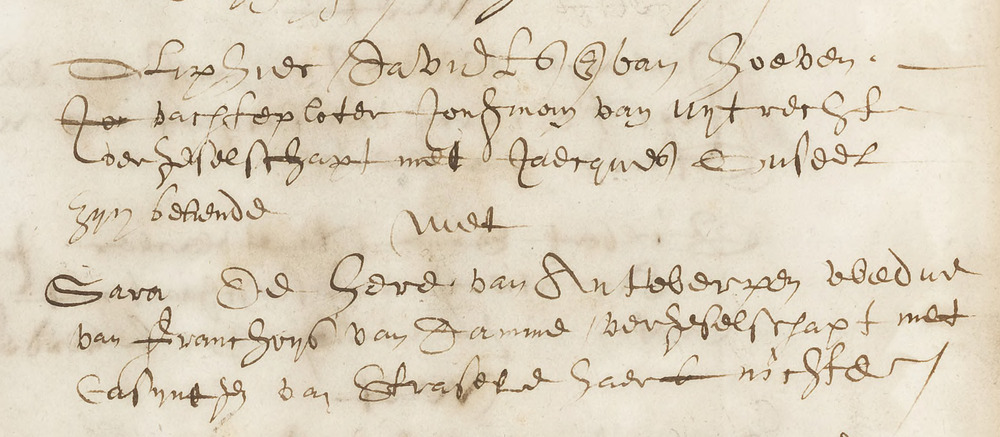 Oliphier Davidts van Hoeven.
vachteploter Jonckman van uijtrecht
verzeselschapt met Jacques Cuseel
zijn bekende
Met
Sara De Here van Antwerpen wedue
van Franchoijs van Damme verzeselschapt met
Casijntzen van Strasele haer nichte